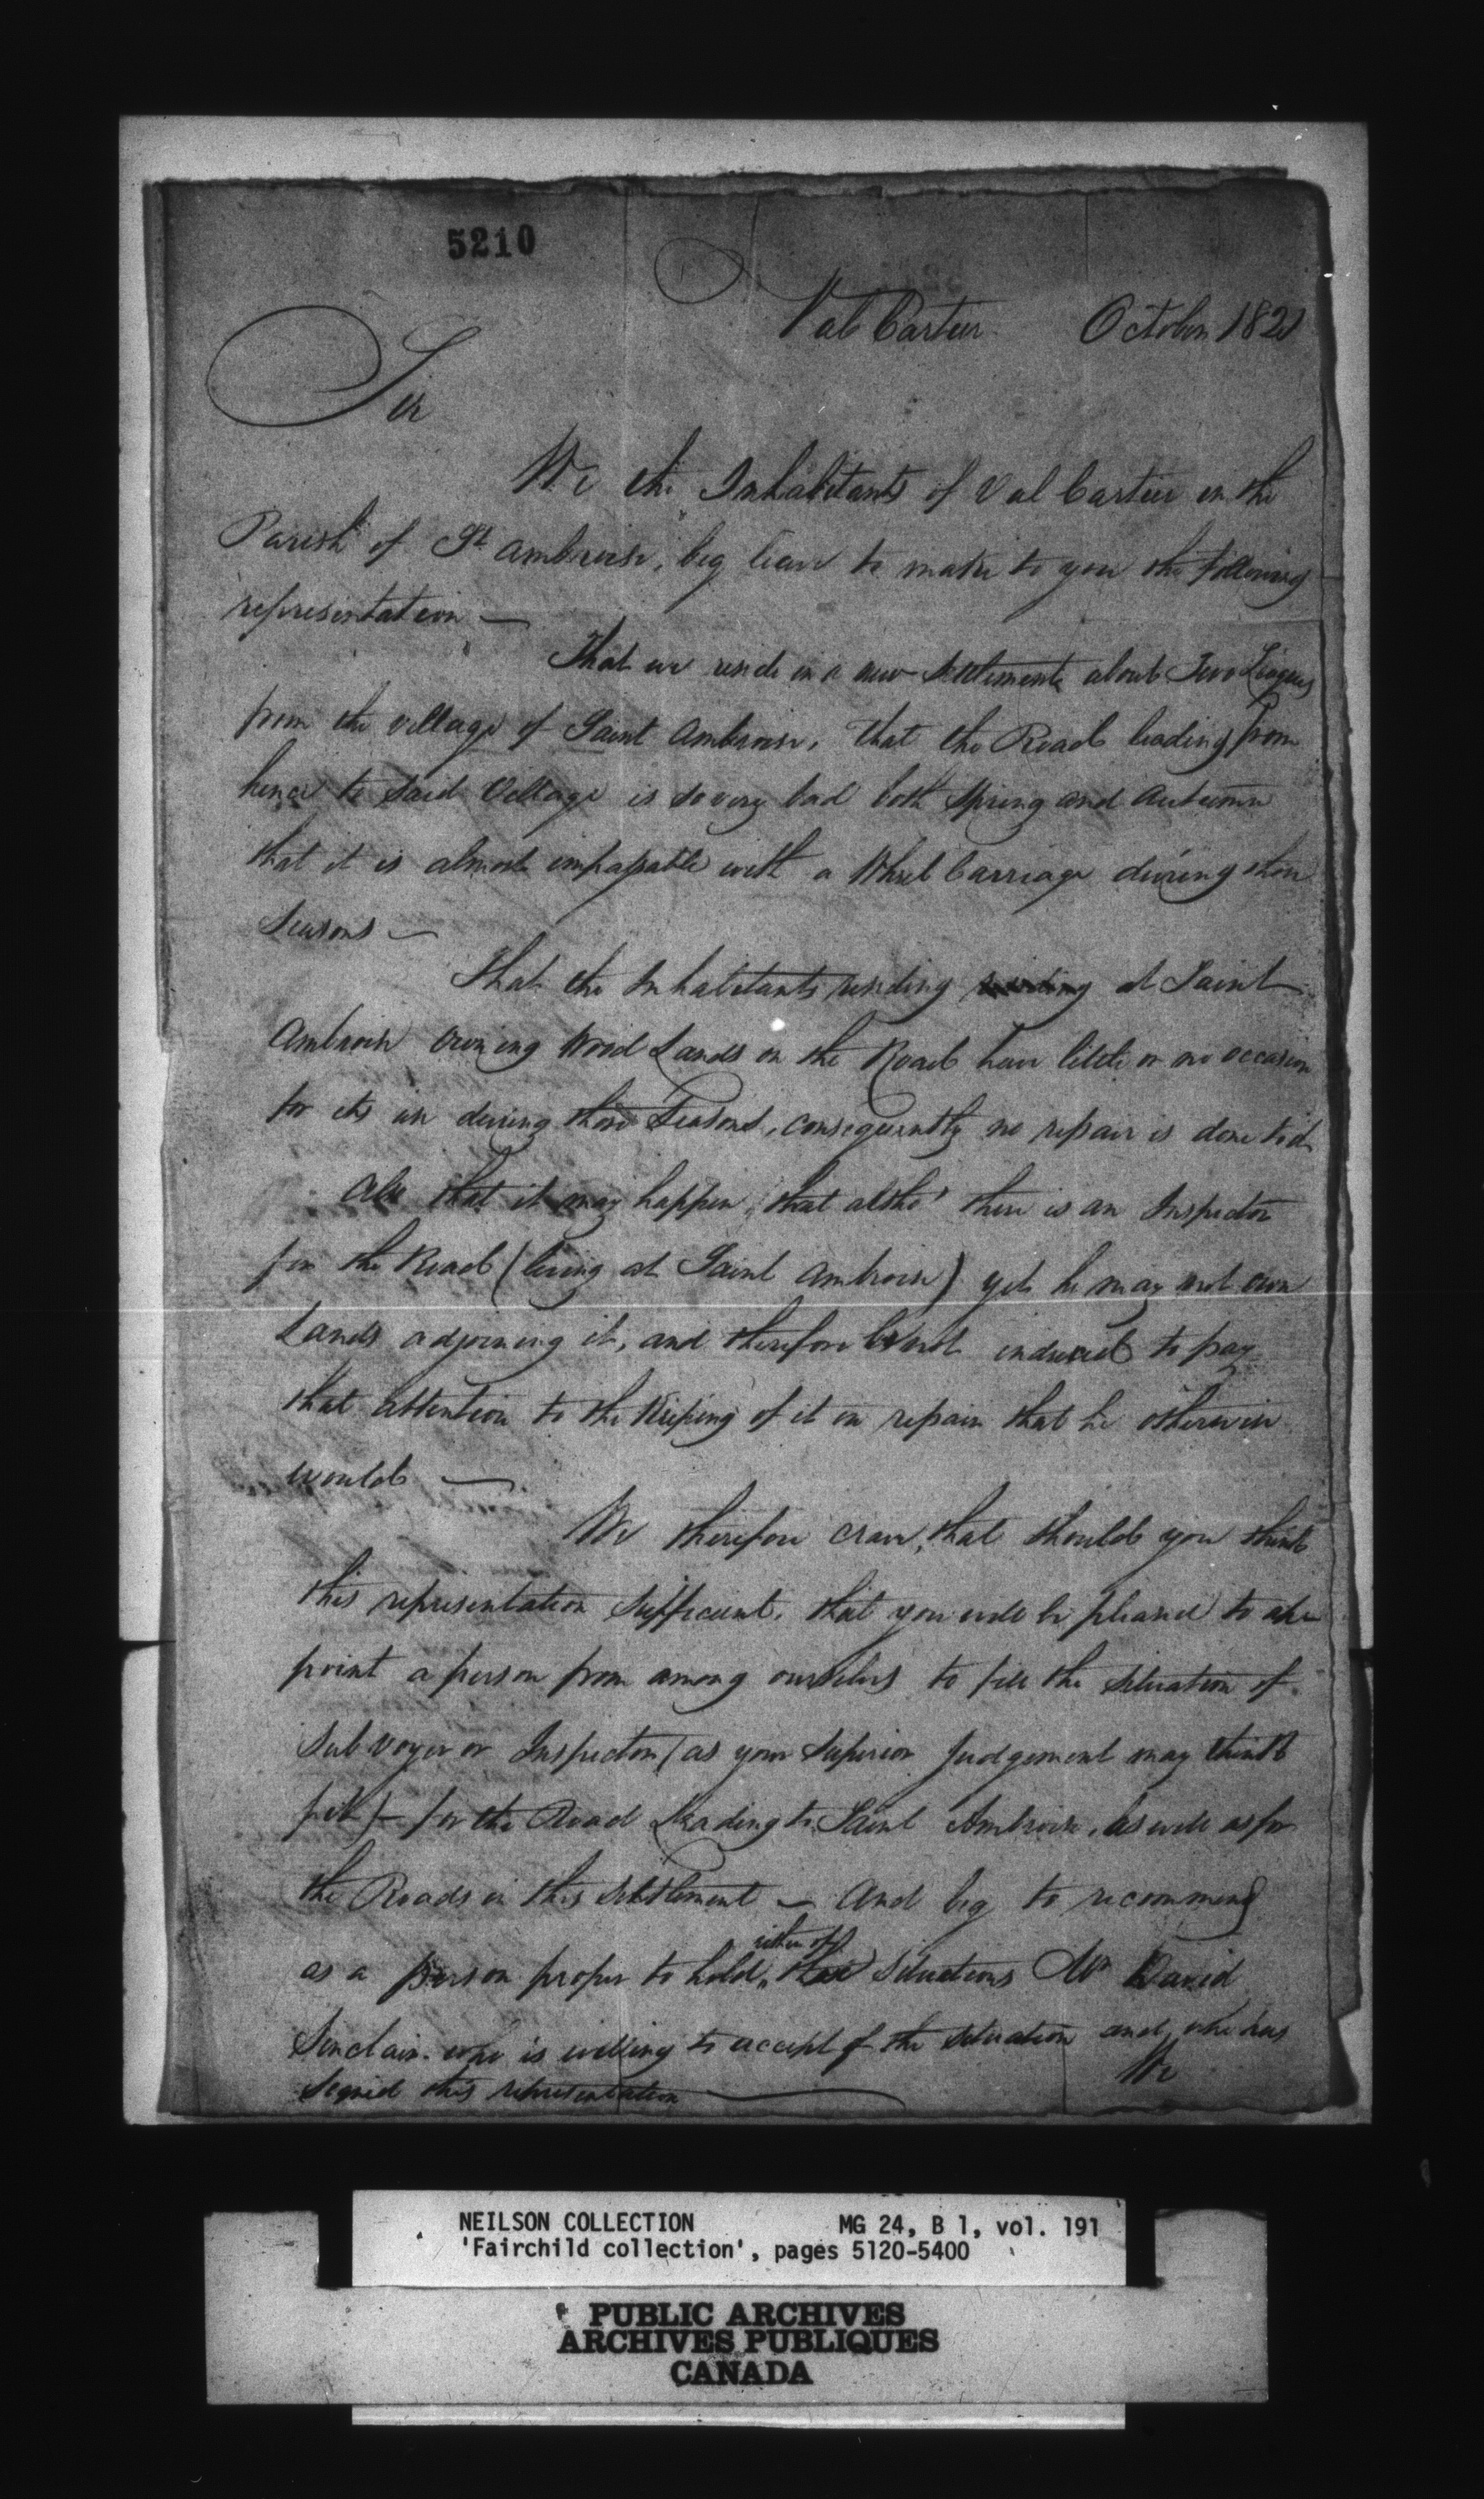 5210
Val Cartier October 182
Sir
We the Inhabitants of Val Cartier in the
Parish of St Ambroise, beg leave to make to you the following
representation —
That we reside in a new Settlement about Two Leagues
from the village of Saint Ambroise, that the Road leading from
hence to said Village is so very bad both Spring and Autumn
that it is almost impassable with a Wheel Carriage during those
Seasons —
That the Inhabitants residing at Saint
Ambroise owning Wood Lands on the Road have little or no occasion
for its use during those Seasons, consequently no repair is done to it
Also that it may happen, that altho' there is an Inspector
for the Road (living at Saint Ambroise) yet he may not own
Lands adjoining it, and therefore be not induced to pay
that attention to the Keeping of it in repair that he otherwise
would —
We therefore crave, that should you think
this representation Sufficient, that you will be pleased to ap
point a person from among ourselves to fill the Situation of
Sub voyer or Inspector (as your Superior Judgement may think
fit) — for the Road Leading to Saint Ambroise, as well as for
the Roads in this Settlement — And beg to recommend
either of
as a person proper to hold " these Situations Mr David
Sinclair who is willing to accept of the Situation and who has
Signed this representation —
We
NEILSON COLLECTION MG 24, B 1, vol. 191
'Fairchild collection', pages 5120-5400
PUBLIC ARCHIVES
ARCHIVES PUBLIQUES
CANADA